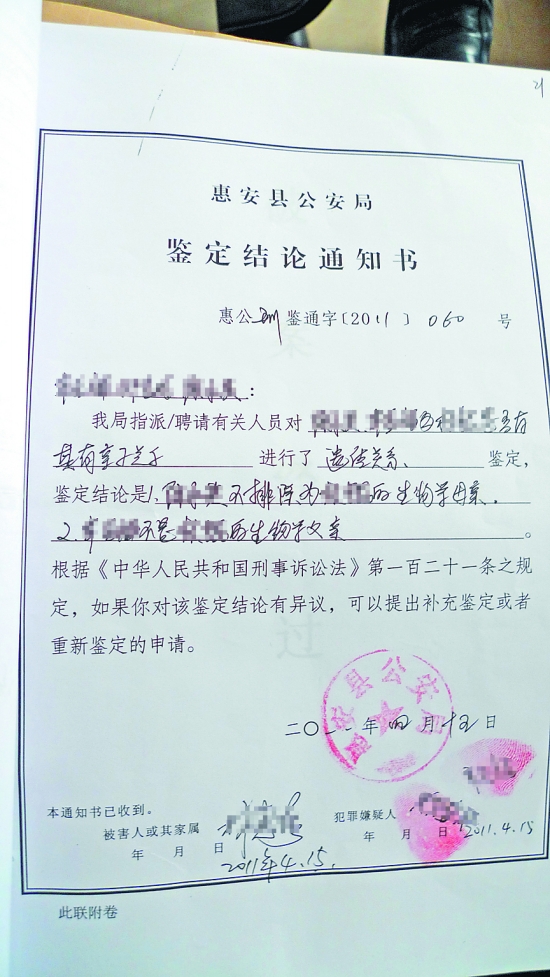 21
惠安县公安局
鉴定结论通知书
惠公刑鉴通字〔2011〕060号
：
我局指派/聘请有关人员对
具有亲子关系 进行了 遗传关系 鉴定，
鉴定结论是1. 不排除为 的生物学母亲.
2. 不是 的生物学父亲 。
根据《中华人民共和国刑事诉讼法》第一百二十一条之规
定，如果你对该鉴定结论有异议，可以提出补充鉴定或者
重新鉴定的申请。
惠安县公安局
二〇一一年四月十五日
本通知书已收到。
被害人或其家属 犯罪嫌疑人
年 月 日 年 月 日 2011.4.15
2011年4.15.
此联附卷